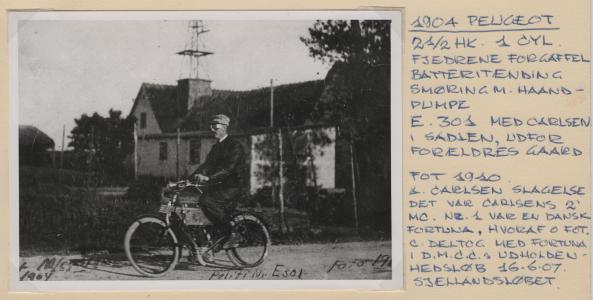 1904 PEUGEOT
2 1/2 HK. 1 CYL.
FJEDRENE FORGAFFEL
BATTERITÆNDING
SMØRING M. HAAND-
PUMPE
E. 301 MED CARLSEN
I SADLEN, UDFOR
FORÆLDRES GAARD
FOT 1910
A. CARLSEN SLAGELSE
DET VAR CARLSENS 2'
MC. NR. 1 VAR EN DANSK
FORTUNA, HVORAF O FOT.
C. DELTOG MED FORTUNA
I D.M.C.C.s UDHOLDEN-
HEDSLØB 16-6-07.
SJELLANDSLØBET
1904
Politi Nr. E301
Foto 191